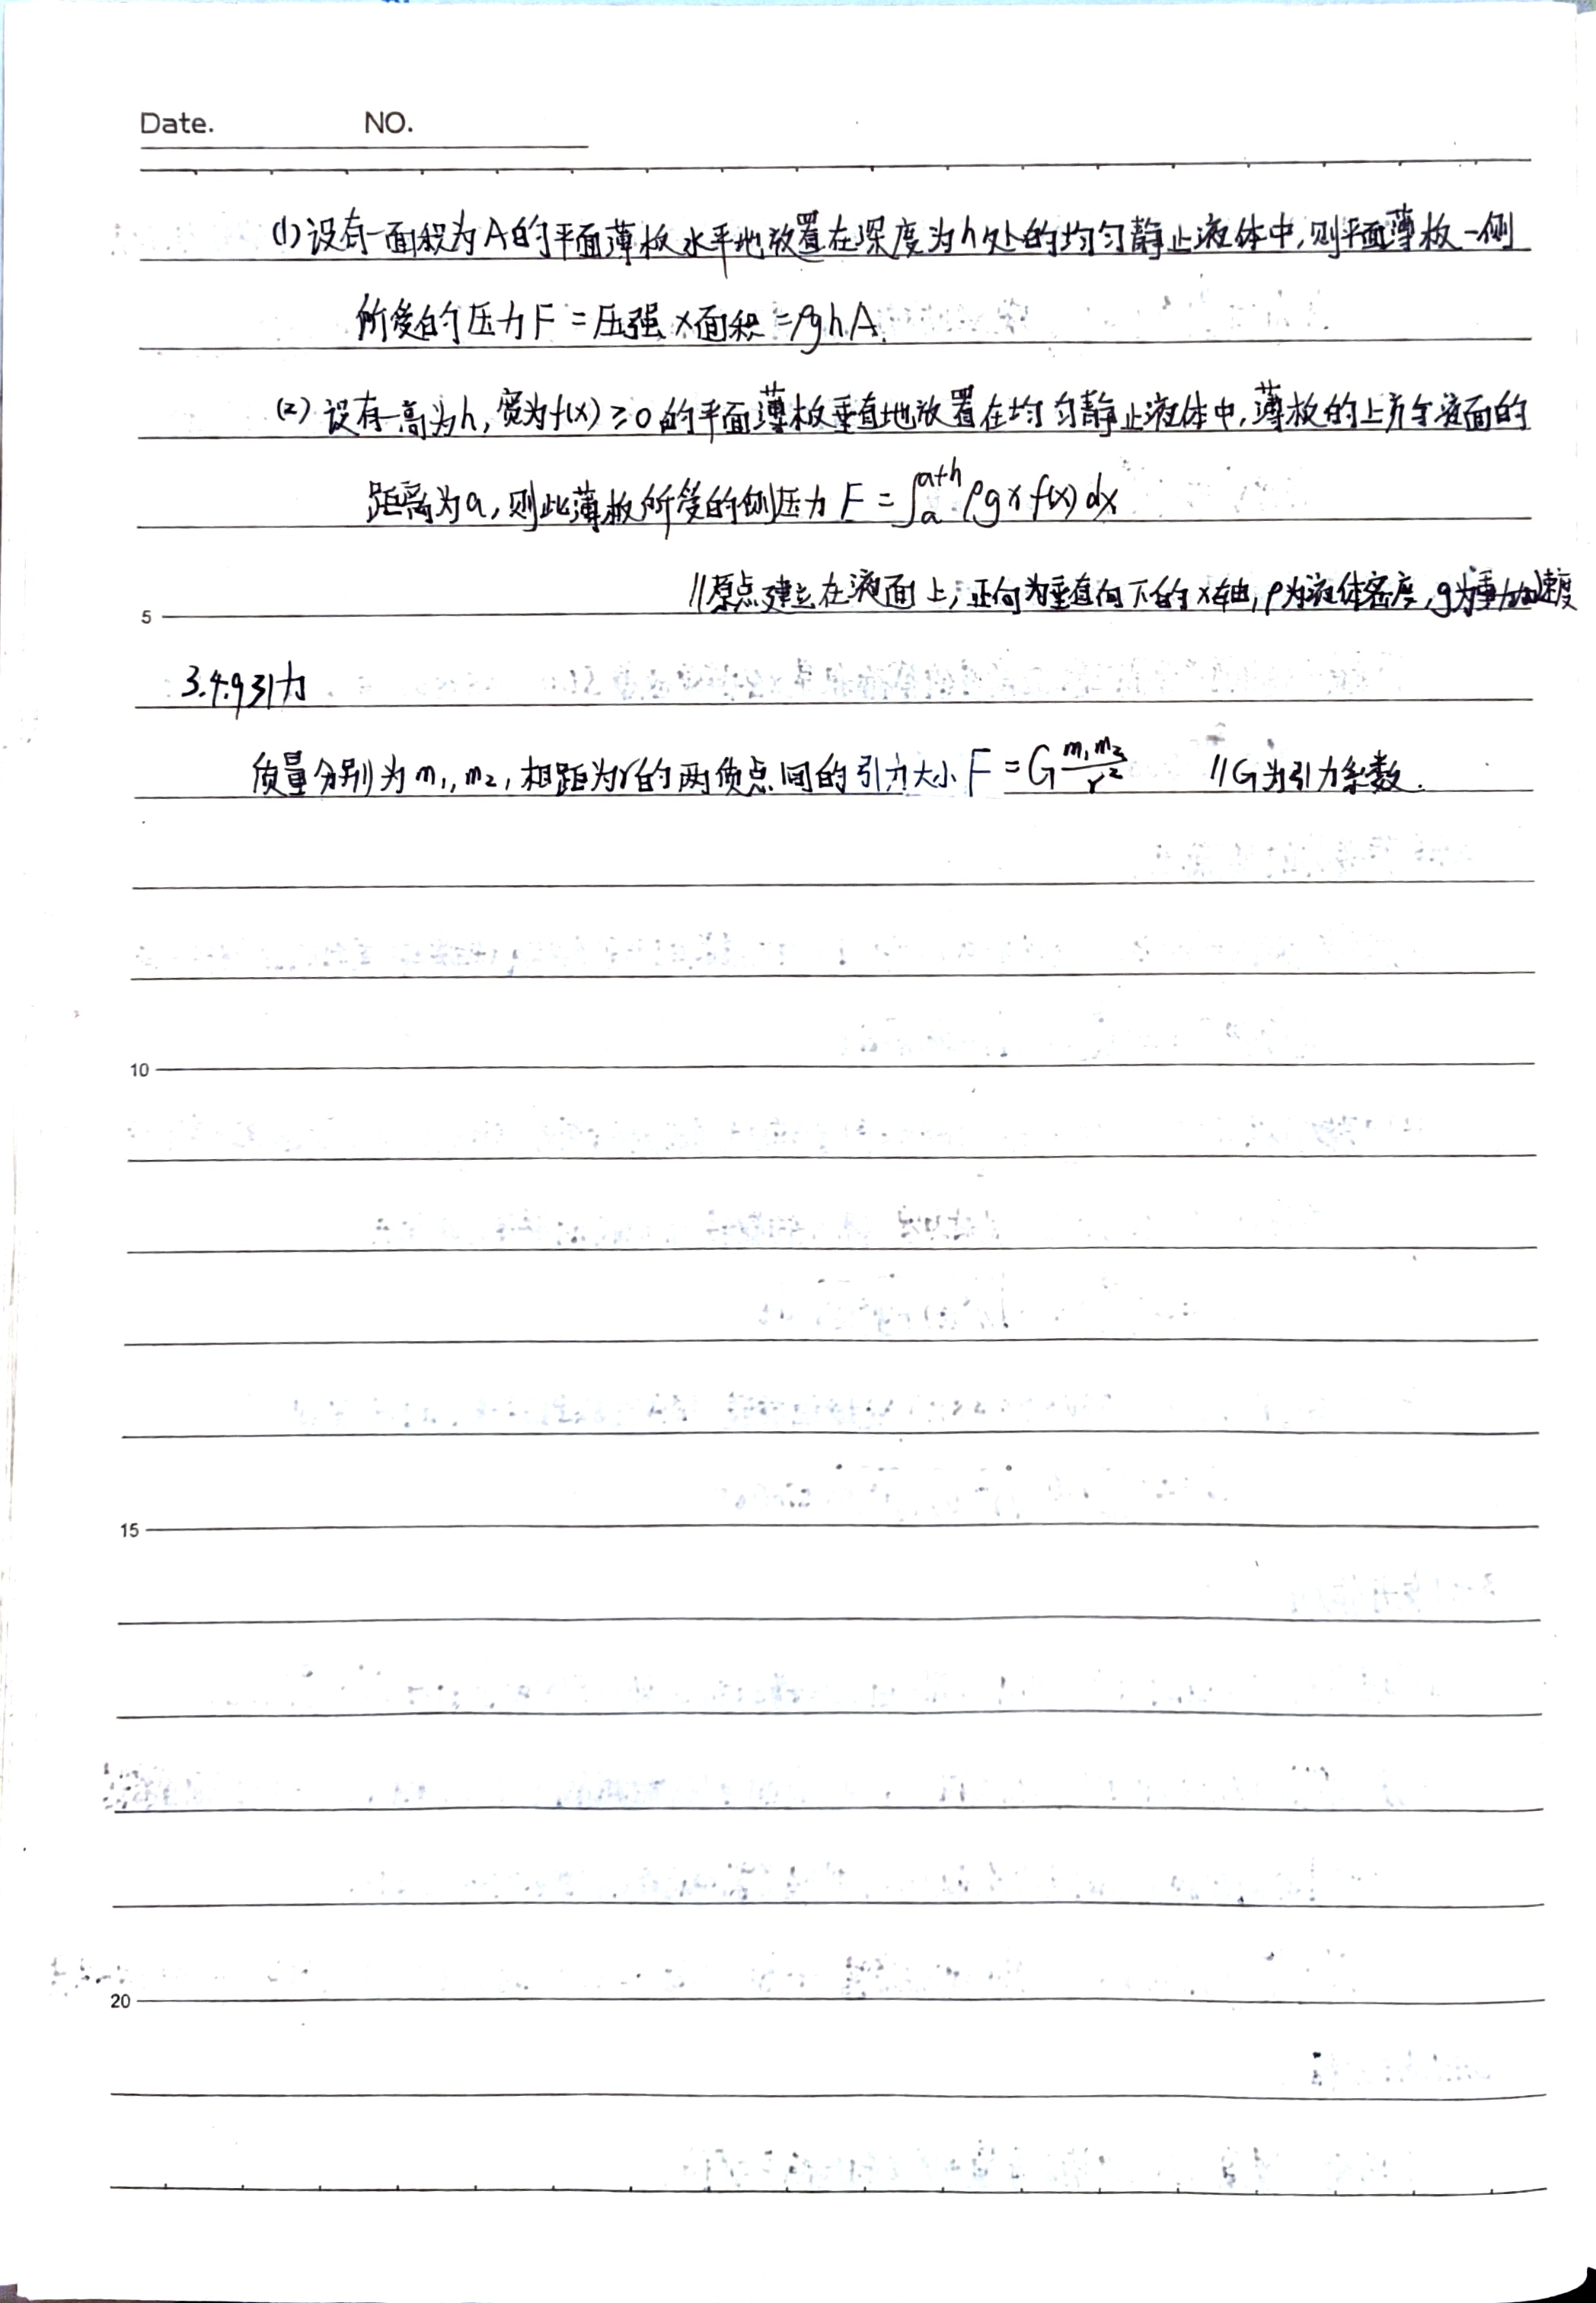 Date. NO.
(1) 设有一面积为A的平面薄板水平地放置在深度为h处的均匀静止液体中,则平面薄板一侧
所受的压力F=压强×面积=ρghA.
(2) 设有一高为h,宽为f(x)≥0的平面薄板垂直地放置在均匀静止液体中,薄板的上方与液面的
距离为a,则此薄板所受的侧压力 F=∫ₐᵃ⁺ʰ ρgxf(x)dx
//原点建立在液面上,正向为垂直向下的x轴,ρ为液体密度,g为重力加速度
5
3.4.9引力
质量分别为m₁,m₂,相距为r的两质点间的引力大小F=G m₁m₂/r² //G为引力系数.
10
15
20